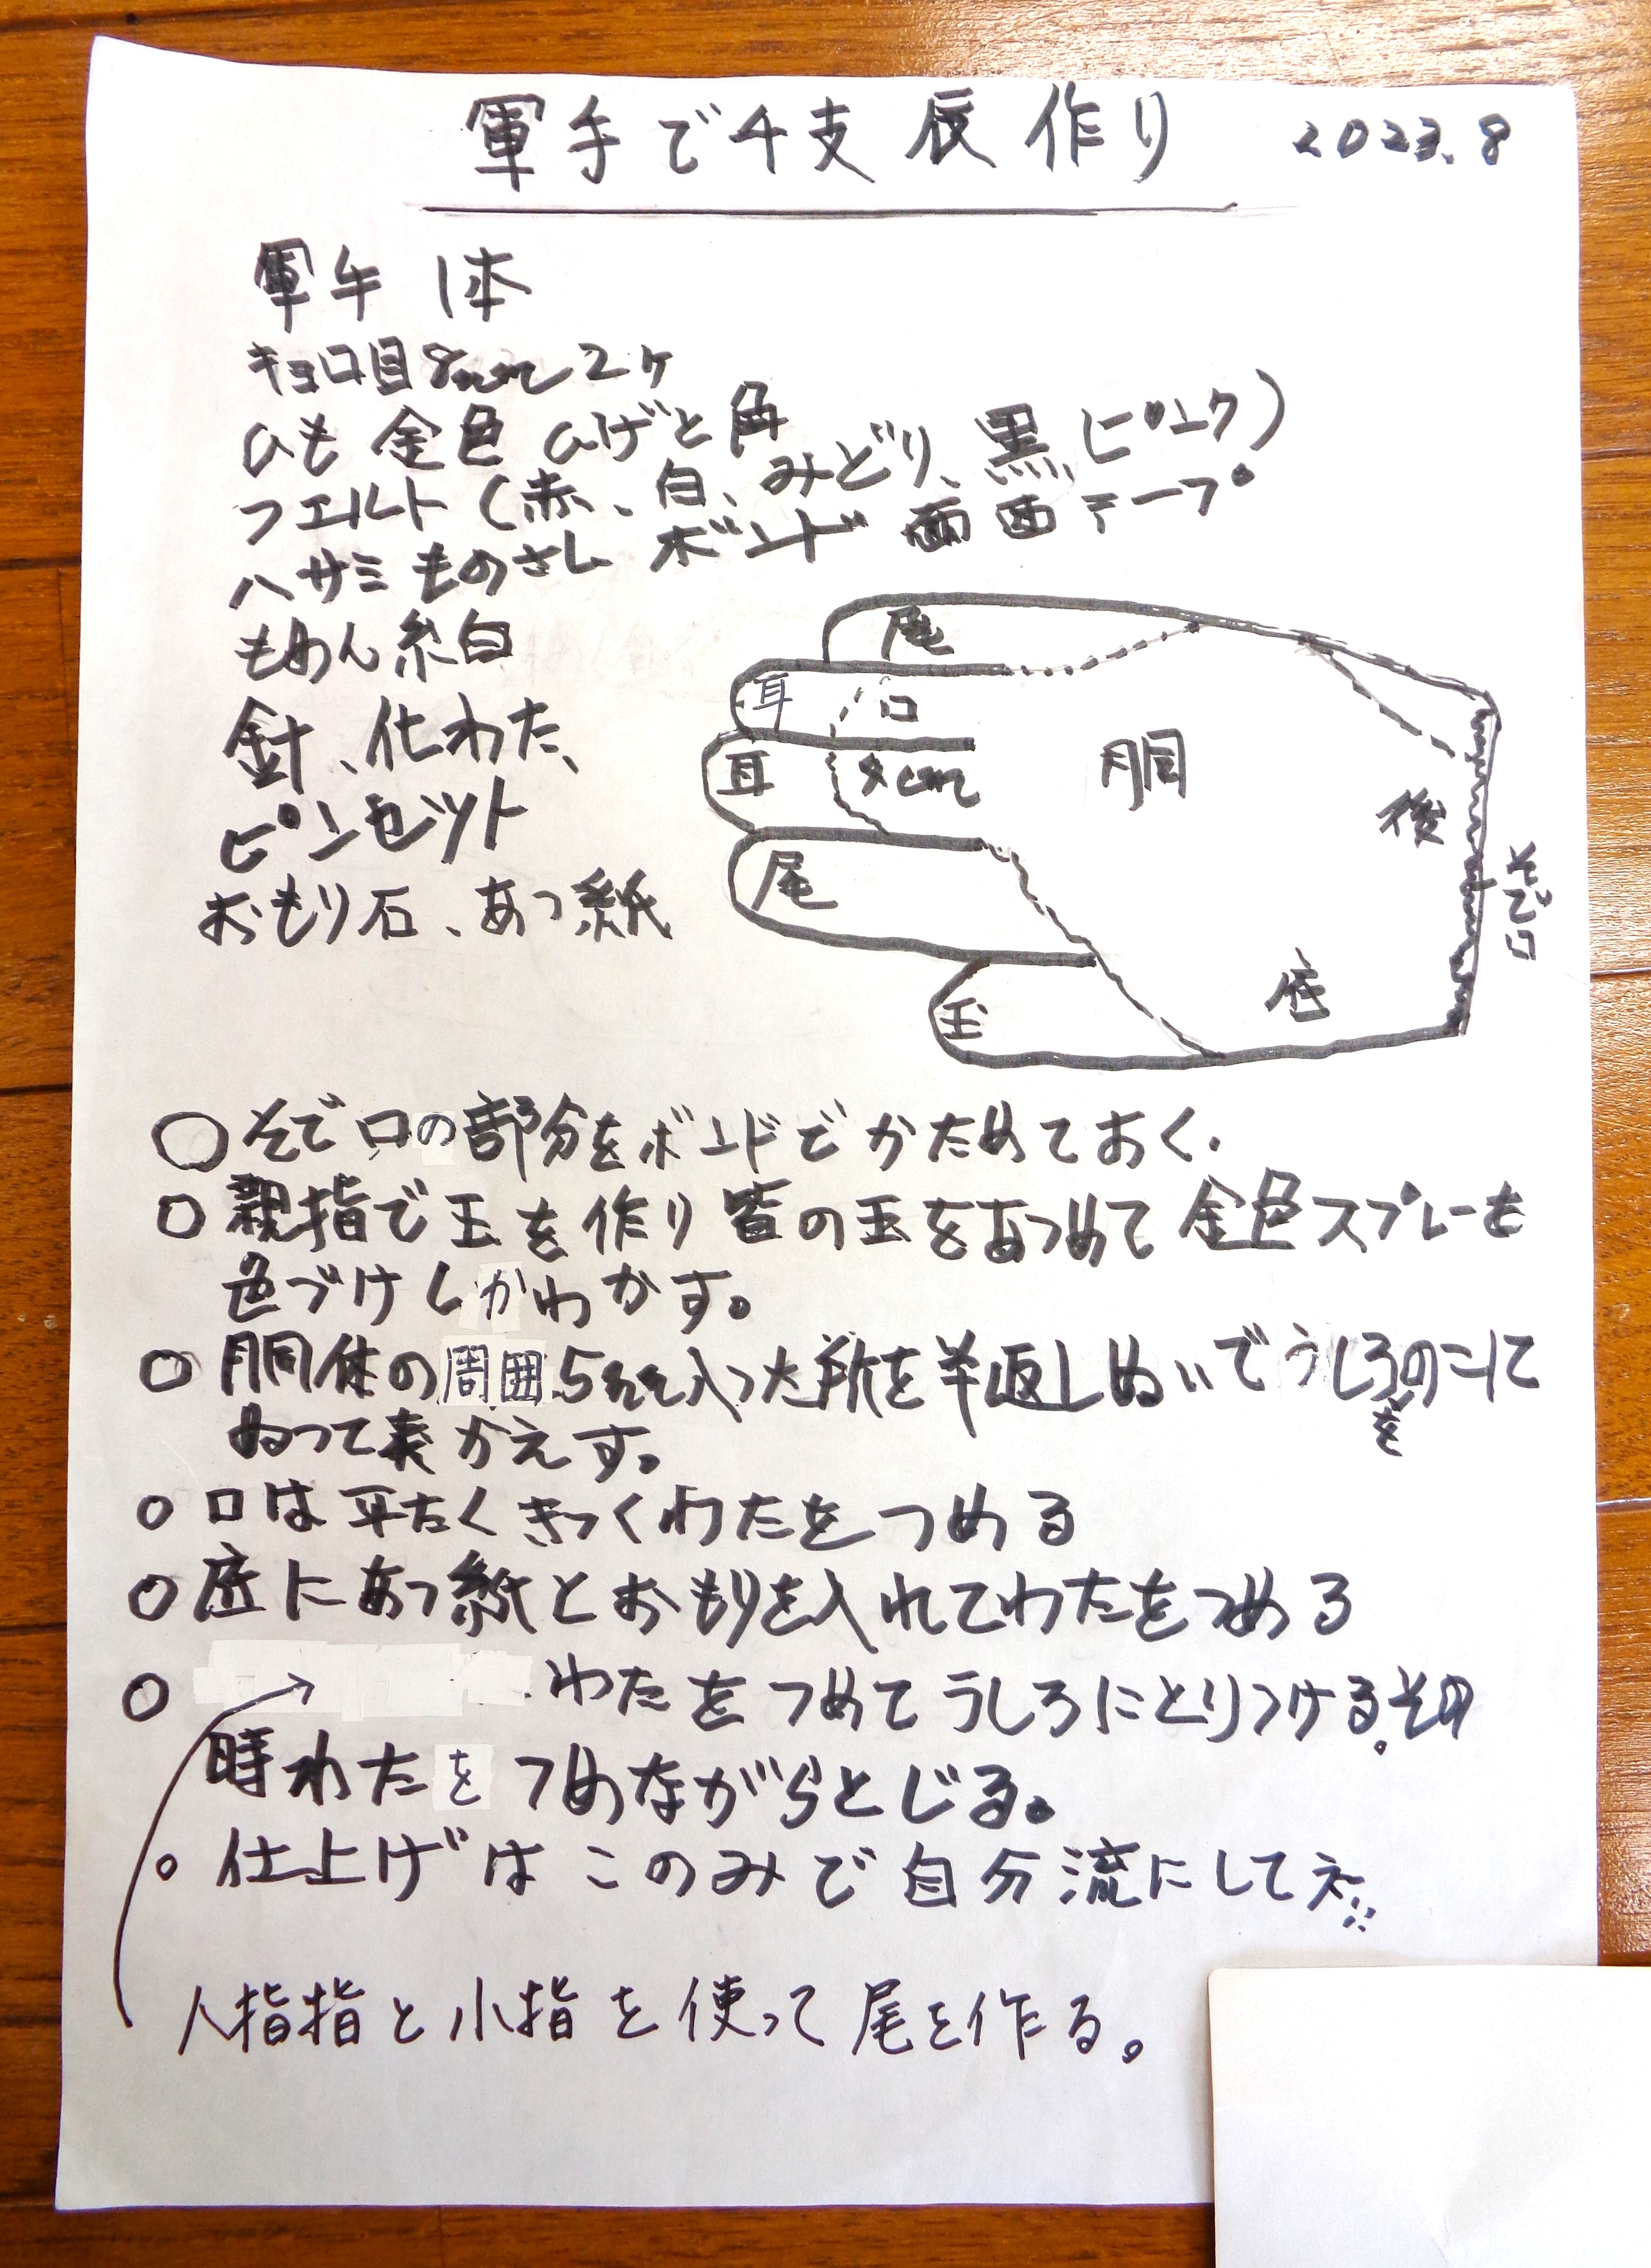 軍手で干支 辰 作り 2023.8
軍手 1本
キョロ目8mm 2ヶ
ひも 金色 ひげと角
フェルト(赤、白、みどり、黒、ピンク)
ハサミ ものさし ボンド 両面テープ
もめん糸白
針、化わた、
ピンセット
おもり石、あつ紙
尾
耳 口
耳 4cm 胴
後
尾
そで口
底
玉
○そで口の部分をボンドでかためておく.
○親指で玉を作り皆の玉をあつめて金色スプレーを
色づけしかわかす。
○胴体の周囲5mm入った所を半返しぬいでうしろをのこして
ぬって表かえす。
○口は平たくきつくわたをつめる
○底にあつ紙とおもりを入れてわたをつめる
○→ わたをつめてうしろにとりつける。その
時わたをつめながらとじる。
○仕上げはこのみで自分流にしてネ!!
人指指と小指を使って尾を作る。